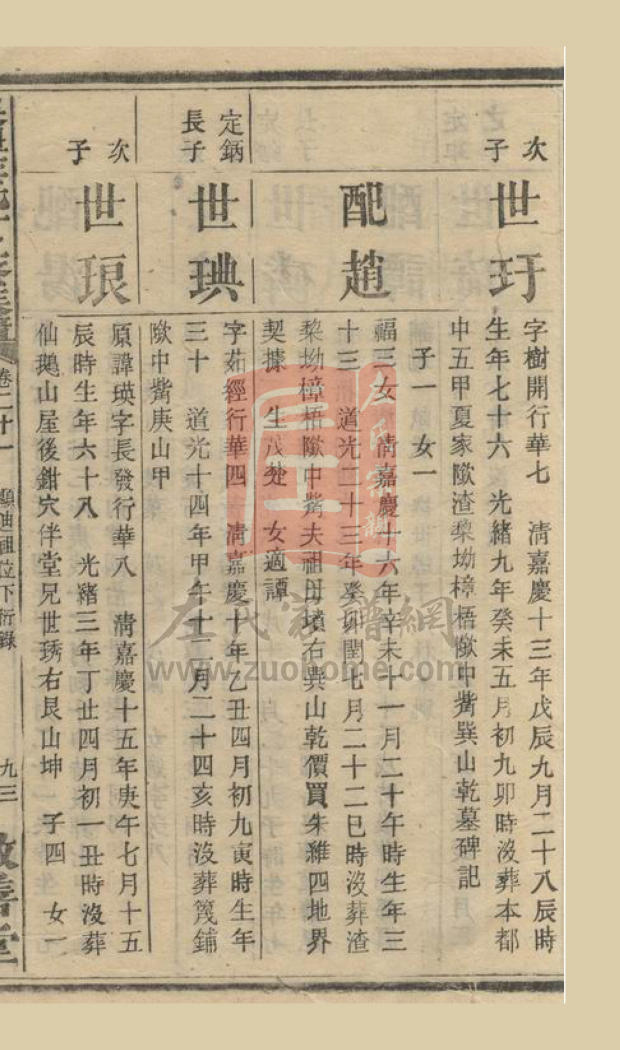 次子
世玗
字樹開行華七 清嘉慶十三年戊辰九月二十八辰時
生年七十六 光緒九年癸未五月初九卯時沒葬本都
中五甲夏家歐渣藜坳樟梧歐中觜巽山乾墓碑記
子一 女一
配趙
福三女清嘉慶十六年辛未十一月二十午時生年三
十三 道光二十三年癸卯閏七月二十二巳時沒葬渣
黎坳樟梧歐中觜夫祖母墳右巽山乾價買朱雒四地界
契據 生茂 女適譚
定鈵長子
世琠
字茹經行華四 清嘉慶十年乙丑四月初九寅時生年
三十 道光十四年甲午十二月二十四亥時沒葬篾鋪
歐中觜庚山甲
次子
世琅
原諱瑛字長發行華八 清嘉慶十五年庚午七月十五
辰時生年六十八 光緒三年丁丑四月初一丑時沒葬
仙鵝山屋後鉗穴伴堂兄世琇右艮山坤 子四 女一
卷二十一
顯迪祖位下衍錄
九三
敬善堂
左氏家譜網
www.zuohome.com